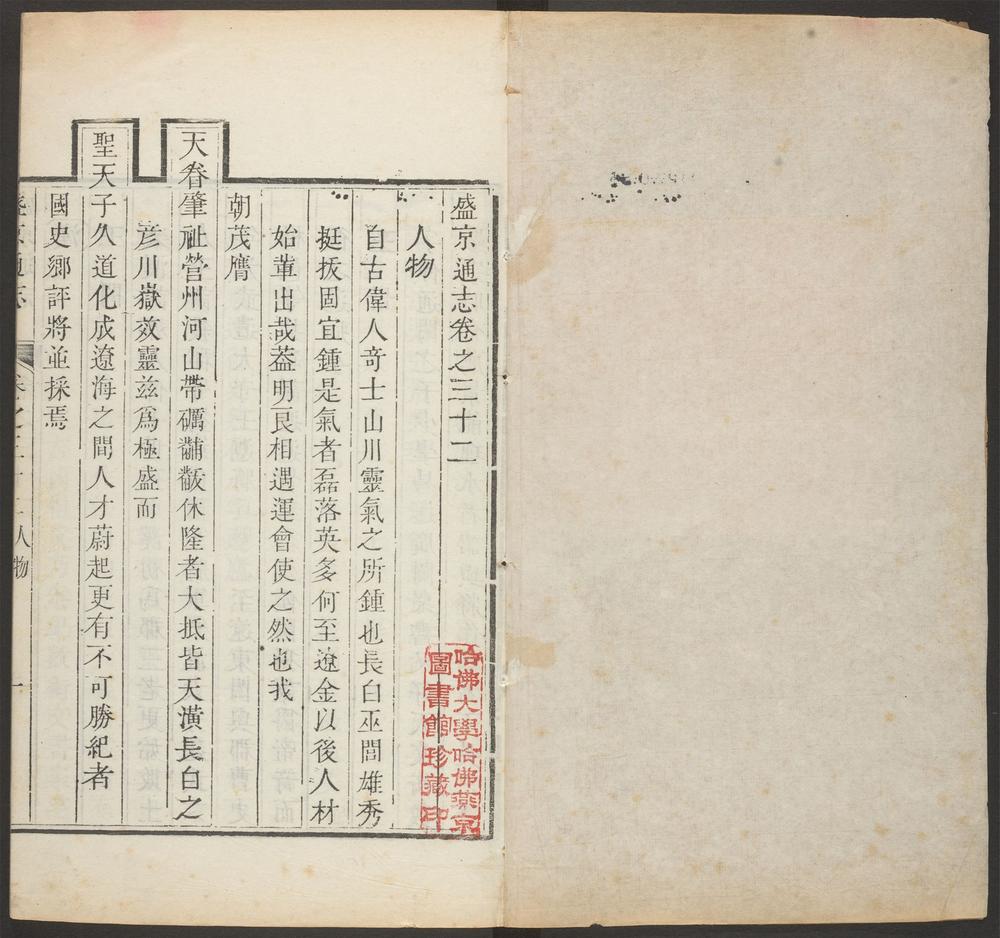 盛京通志卷之三十二
人物
自古偉人奇士山川靈氣之所鍾也長白巫閭雄秀
挺拔固宜鍾是氣者磊落英多何至遼金以後人材
始軰出哉葢明良相遇運會使之然也我
朝茂膺
天眷肇祉營州河山帶礪黼黻休隆者大抵皆天潢長白之
彦川嶽效靈兹爲極盛而
聖天子久道化成遼海之間人才蔚起更有不可勝紀者
國史鄉評將並採焉
盛京通志
卷之三十二人物
一
哈佛大學哈佛燕京
圖書館珍藏印